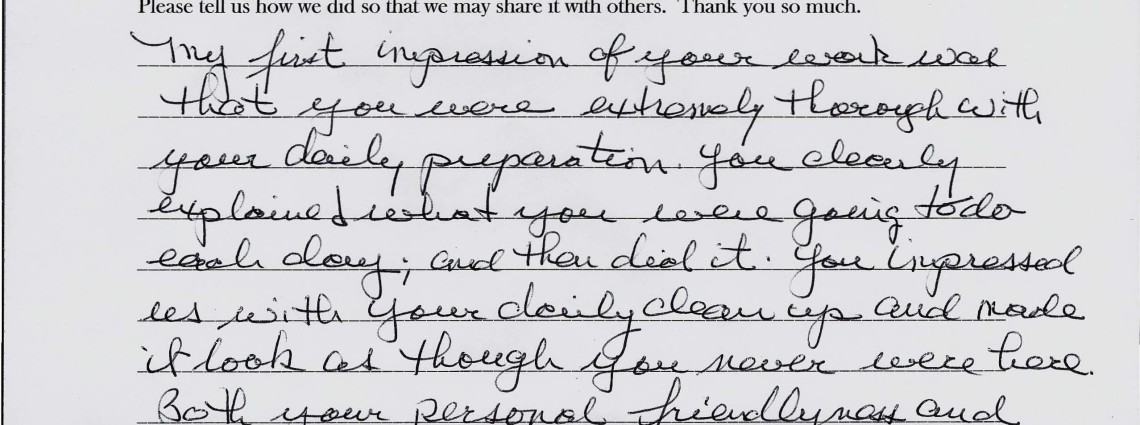 Please tell us how we did so that we may share it with others. Thank you so much.
My first impression of your work was
that you were extremely thorough with
your daily preparation. You clearly
explained what you were going to do
each day; and then did it. You impressed
us with your daily clean up and made
it look as though you never were here.
Both your personal friendlyness and